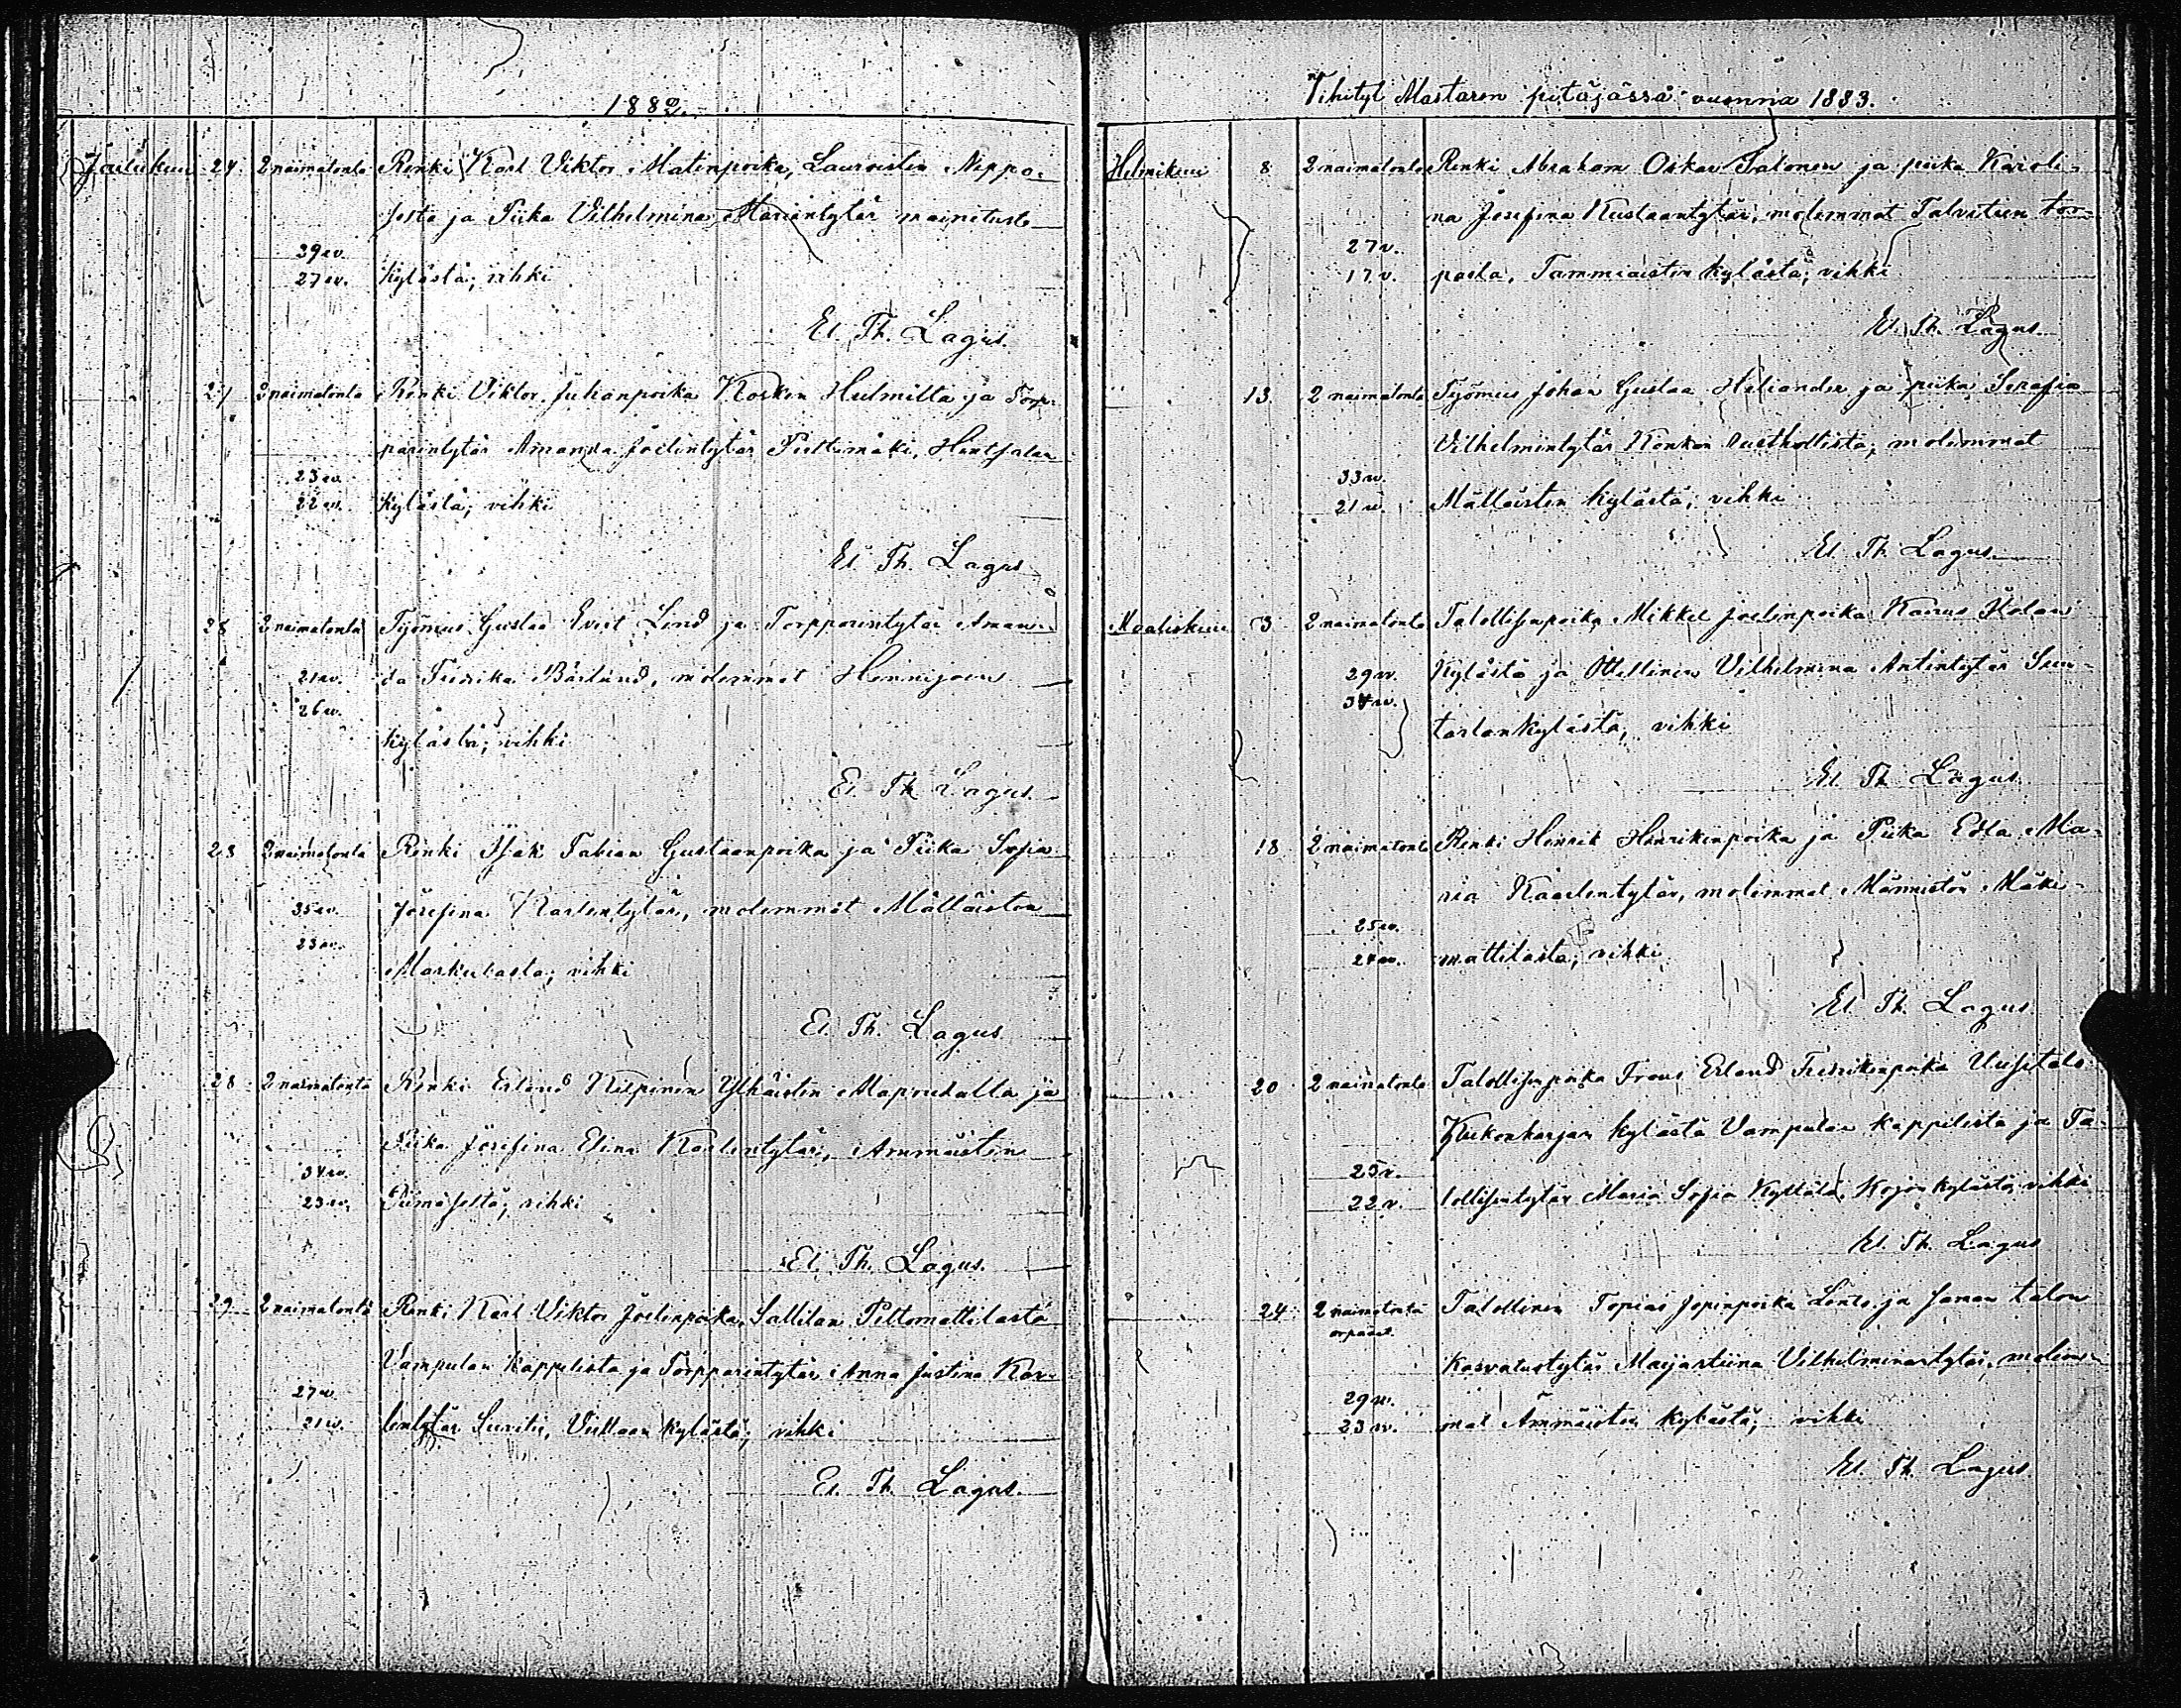 1882.
Joulukuu 24 2 naimatonta Renki Karl Viktor Matinpoika, Lauroisten Neppa-
josta ja Piika Vilhelmina Mariantytär mainitusta
39 v.
27 v. kylästä; vihki
El. Th. Lagus.
27 2 naimatonta Renki Viktor Juhanpoika Kosken Hulmilta ja Torp-
parintytär Amanda Joelintytär
23 v.
22 v. kylästä; vihki
El. Th. Lagus
28 2 naimatonta Työmies Gustaa Evert Lind ja Torpparintytär Aman-
21 v. da Fredrika molemmat Hennijoen
26 v.
kylästä; vihki
El. Th. Lagus.
28 2 naimatonta Renki Isak Fabian Gustaanpoika ja Piika Sofia
35 v. Josefina Karlentytär, molemmat Mälläisten
23 v.
Markulasta; vihki
El. Th. Lagus
28 2 naimatonta Renki Erland Kilpinen Ylhäisten ja
Piika Josefina Elina Karlentytär, Ammäisten
34 v.
23 v. vihki
El. Th. Lagus.
29 2 naimatonta Renki Karl Viktor Joelinpoika, Sallilan Piltomattilasta
Vampulan kappelista ja Torpparintytär Anna Justina Kar-
27 v.
21 v. lentytär kylästä; vihki
El. Th. Lagus.
Vihityt Maskaren pitäjässä vuonna 1883.
Helmikuu 8 2 naimatonta Renki Abraham Oskar Salonen ja piika Karoli-
na Josefina Kustaantytär, molemmat Talvitien tor-
27 v.
17 v. pasta, Tammiaisten kylästä; vihki
El. Th. Lagus.
13 2 naimatonta Työmies Johan Gustaa Heliander ja piika Serafia
Vilhelmintytär Konkan Rusthollista, molemmat
33 v.
21 v. Mälläisten kylästä; vihki
El. Th. Lagus
Maaliskuu 3 2 naimatonta Talollisenpoika Mikkel Joelinpoika
29 v. Kylästä ja Itellinen Vilhelmina Antintytär Suu-
34 v.
vihki
El. Th. Lagus
18 2 naimatonta Renki Henrik Henrikinpoika ja Piika Edla Ma-
ria Kaarlentytär, molemmat Männistön Mäki-
25 v.
24 v. mattilasta; vihki
El. Th. Lagus.
20 2 naimatonta Talollisenpoika Frans Erland Fredrikinpoika Uusitalo
kylästä Vampulan kappelista ja Ta-
25 v.
22 v. lollisentytär Maria Sofia Kyttälä, Kojon kylästä, vihki
El. Th. Lagus
24 2 naimatonta Talollinen Topias Jopinpoika ja saman talon
orpanat.
kasvatustytär Maijastiina Vilhelminantytär, molem-
29 v.
23 v. mat Ämmäisten kylästä; vihki
El. Th. Lagus.